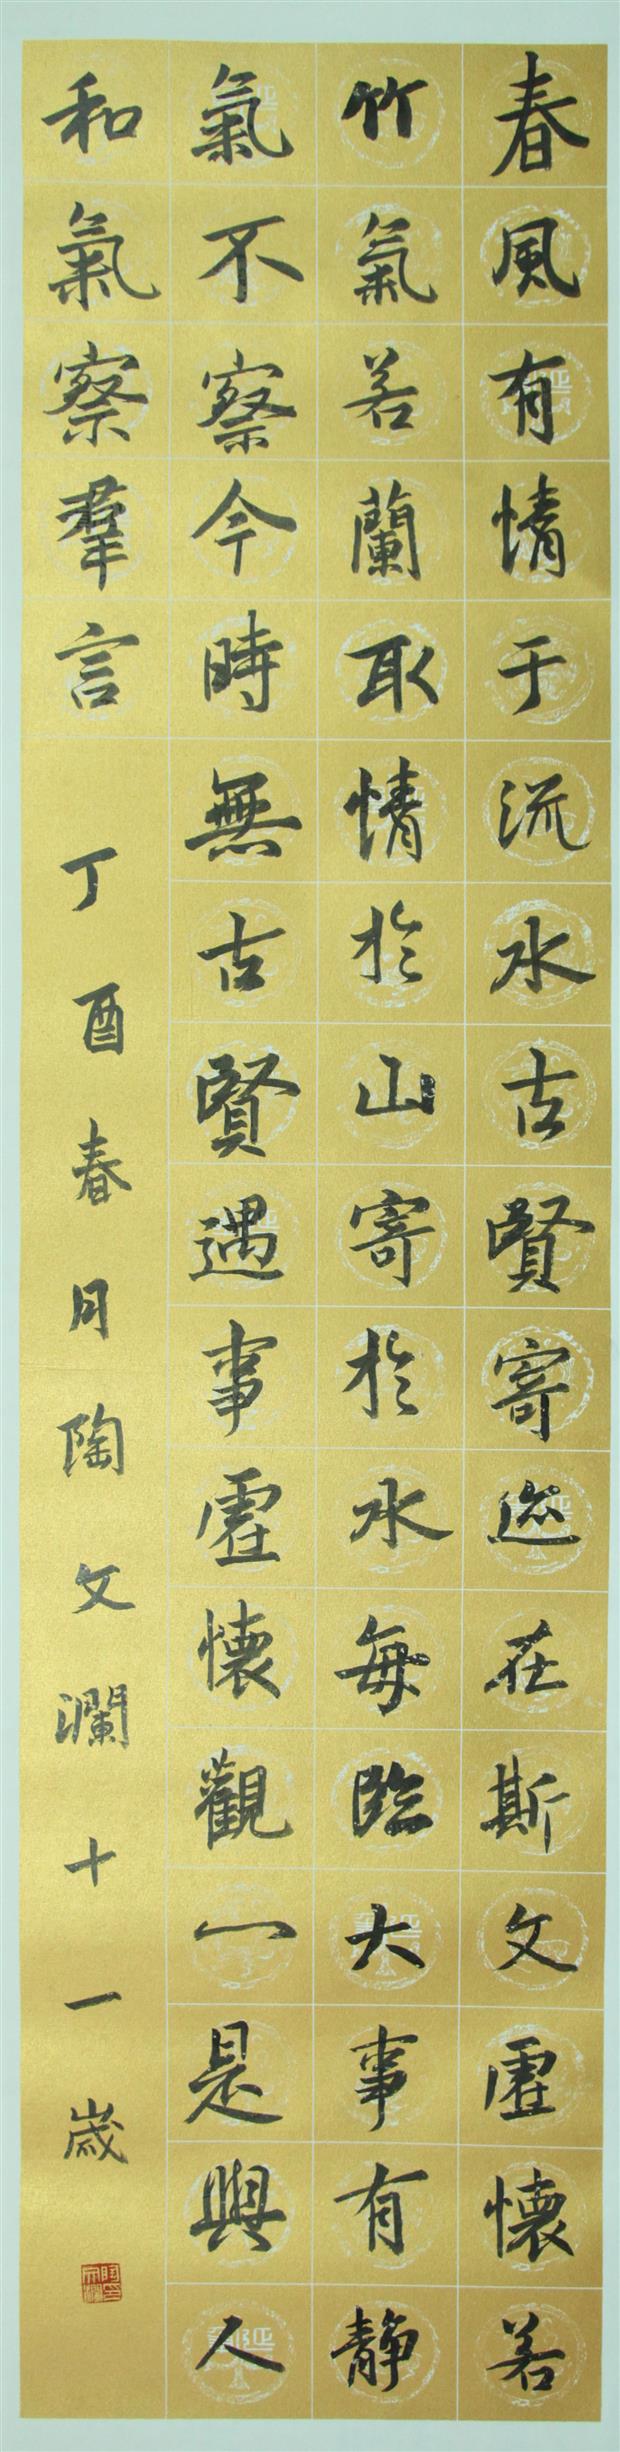 春風有情于流水古賢寄迹在斯文虛懷若
竹氣若蘭取情於山寄於水每臨大事有靜
氣不察今時無古賢遇事虛懷觀一是與人
和氣察群言
丁酉春月陶文瀾十一歲